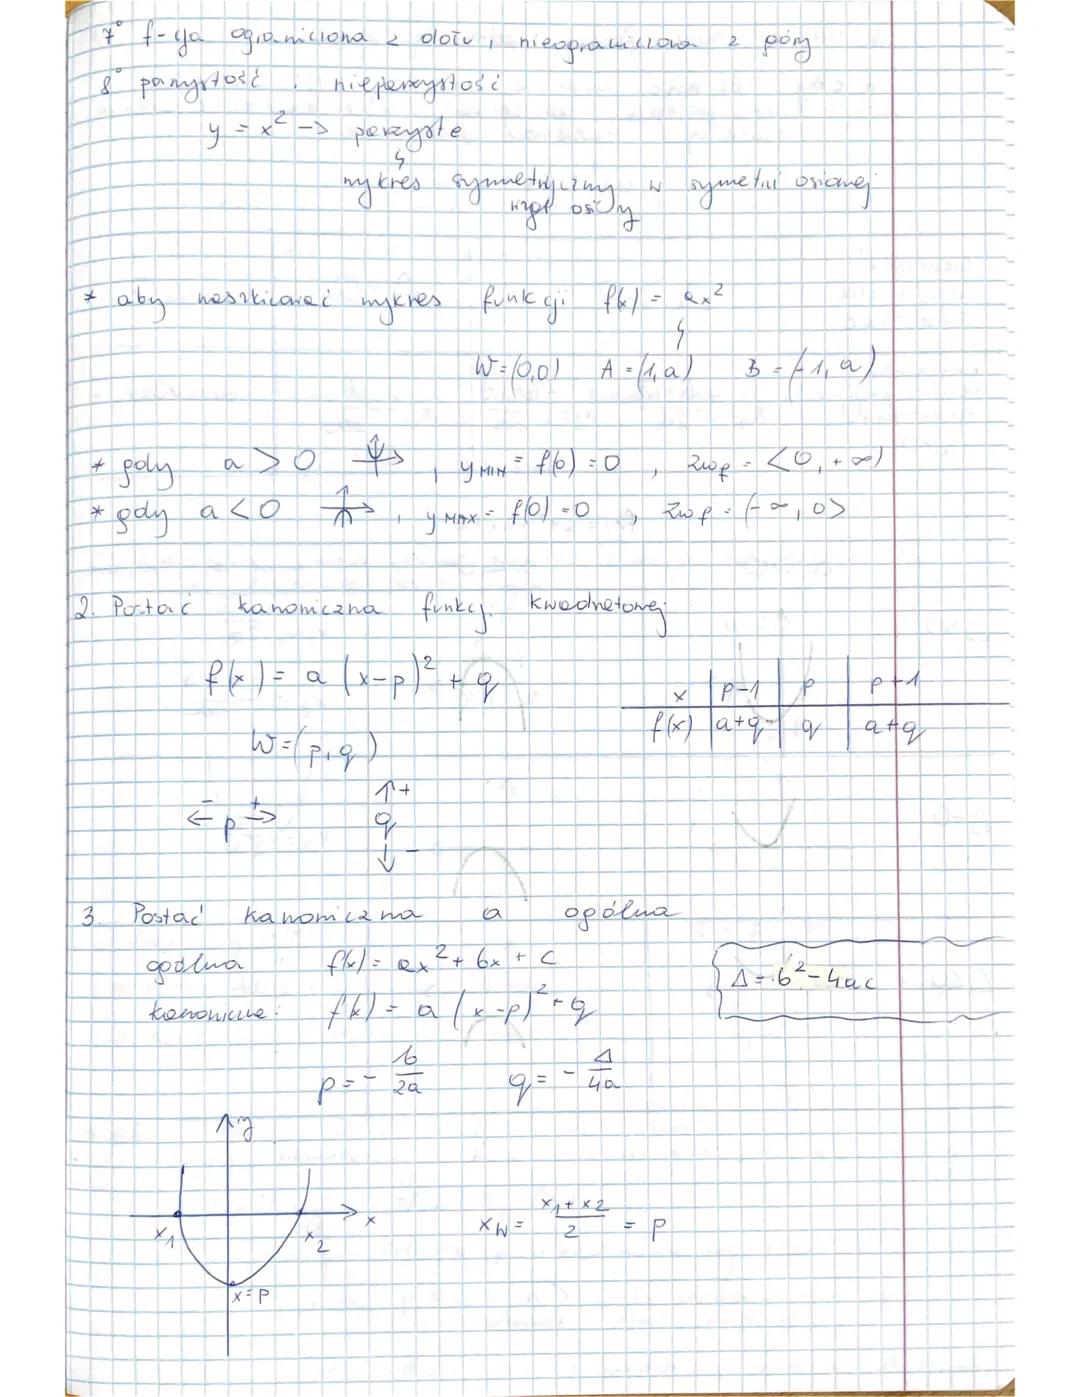 7° f-cja ograniczona z dołu, nieograniczona z góry
8° parzystość i nieparzystość
y = x² -> parzyste
wykres symetryczny w symetrii osiowej
wzgl osi y
* aby naszkicować wykres funkcji f(x) = ax²
W=(0,0) A=(1,a) B=(-1,a)
* gdy a>0 , y MIN = f(0)=0 , zwf = <0,+∞)
* gdy a<0 , y MAX = f(0)=0 , zwf = (-∞,0>
2. Postać kanoniczna funkcj. kwadratowej
f(x) = a(x-p)² + q
x p-1 p p+1
f(x) a+q q a+q
W=(p,q)
- + ↑+
← p → q
↓ -
3. Postać kanoniczna a ogólna
goólna f(x)= ax²+bx+c
Δ=b²-4ac
kanoniczna: f(x)= a(x-p)²+q
p = - b/2a q = - Δ/4a
y
x₁ x₂ x
xW = x₁+x2/2 = p
x=p